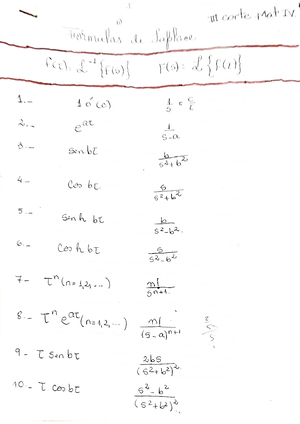 III corte Mat IV
Formulas de Laplace
f(t): L⁻¹{f(s)} F(s): L{f(t)}
1.- 1 ó (c) 1/s ó c/s
2.- e^at 1/(s-a)
3.- sen bt b/(s²+b²)
4.- cos bt s/(s²+b²)
5.- senh bt b/(s²-b²)
6.- cosh bt s/(s²-b²)
7- t^n (n=1,2,...) n!/s^(n+1)
8.- t^n e^at (n=1,2,...) n!/(s-a)^(n+1)
9- t sen bt 2bs/(s²+b²)²
10.- t cos bt (s²-b²)/(s²+b²)²